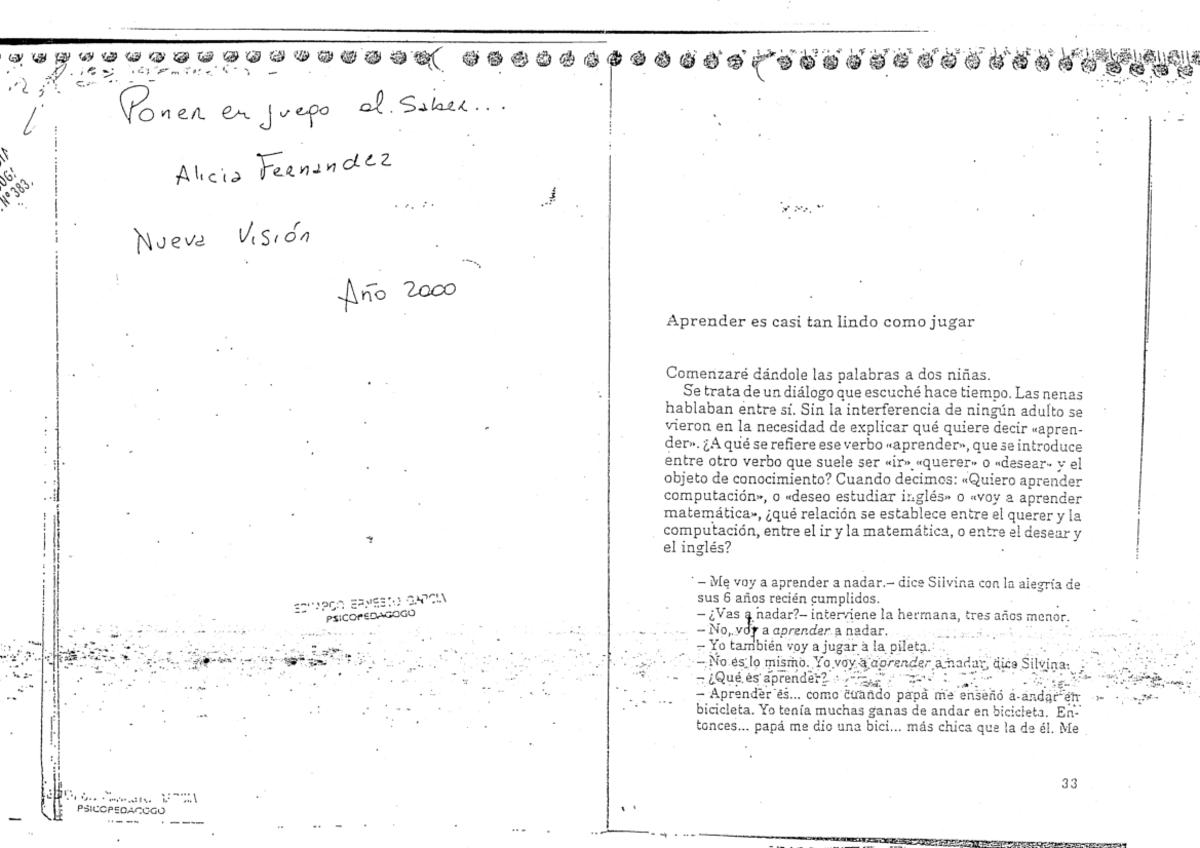 Poner en juego el saber...
Alicia Fernandez
Nueva Visión
Año 2000
Nº 383.
EDUARDO ERNESTO GARCIA
PSICOPEDAGOGO
PSICOPEDAGOGO
Aprender es casi tan lindo como jugar
Comenzaré dándole las palabras a dos niñas.
Se trata de un diálogo que escuché hace tiempo. Las nenas
hablaban entre sí. Sin la interferencia de ningún adulto se
vieron en la necesidad de explicar qué quiere decir «apren-
der». ¿A qué se refiere ese verbo «aprender», que se introduce
entre otro verbo que suele ser «ir», «querer» o «desear» y el
objeto de conocimiento? Cuando decimos: «Quiero aprender
computación», o «deseo estudiar inglés» o «voy a aprender
matemática», ¿qué relación se establece entre el querer y la
computación, entre el ir y la matemática, o entre el desear y
el inglés?
– Me voy a aprender a nadar.– dice Silvina con la alegría de
sus 6 años recién cumplidos.
– ¿Vas a nadar?– interviene la hermana, tres años menor.
– No, voy a aprender a nadar.
– Yo también voy a jugar a la pileta.
– No es lo mismo. Yo voy a aprender a nadar, dice Silvina.
– ¿Qué es aprender?
– Aprender es... como cuando papá me enseñó a andar en
bicicleta. Yo tenía muchas ganas de andar en bicicleta. En-
tonces... papá me dio una bici... más chica que la de él. Me
33